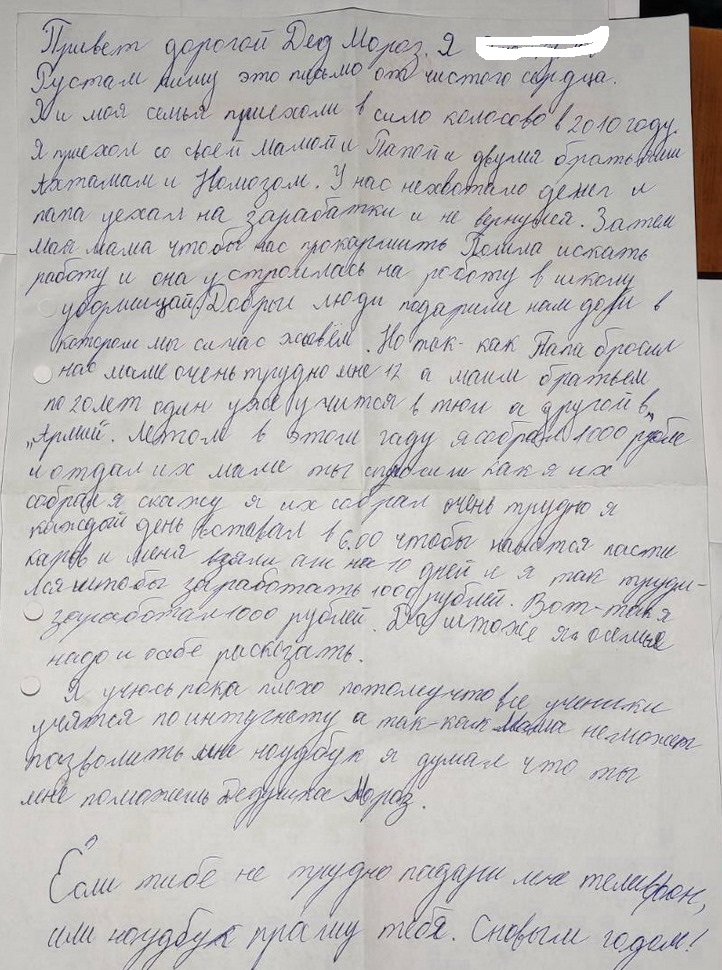 Привет дорогой Дед Мороз. Я
Рустам пишу это письмо от чистого сердца.
Я и моя семья приехоли в сило колосово в 2010 году.
Я приехол со своей мамой и Папой и двумя братьями
Ахтамам и Номозом. У нас нехвотало денег и
папа уехал на зарабатки и не вернулся. Затем
маи мама чтобы нас прокармить Пошла искать
работу и она устроилась на роботу в школу
уборщицай. Добрыи люди подарили нам дом в
котером мы сичас живём. Но так-как Папа бросил
нас маме очень трудно мне 12 а маим братьем
по 20 лет один уже учится в тюи а другой в
"Армий. Летом в этом гаду я собрал 1000 рубле
и отдал их маме ты спросиш как я их
собрал я скажу я их собрал очень трудно я
каждый день вставал в 6.00 чтобы пасти
каров и меня взяли аш на 10 дней и я так труди-
лся штобы заработать 1000 рублей. Вот-так я
зароботал 1000 рублей. Да што же я о семье
надо и о себе расказать.
Я учюсь пока плохо потомучто все ученики
учятся по интугнету а так-как Мама неможет
позволить мне ноудбук я думал что ты
мне поможешь Дедушка Мороз.
Если тибе не трудно падари мне телифон,
или ноудбук прашу тебя. Сновым годом!